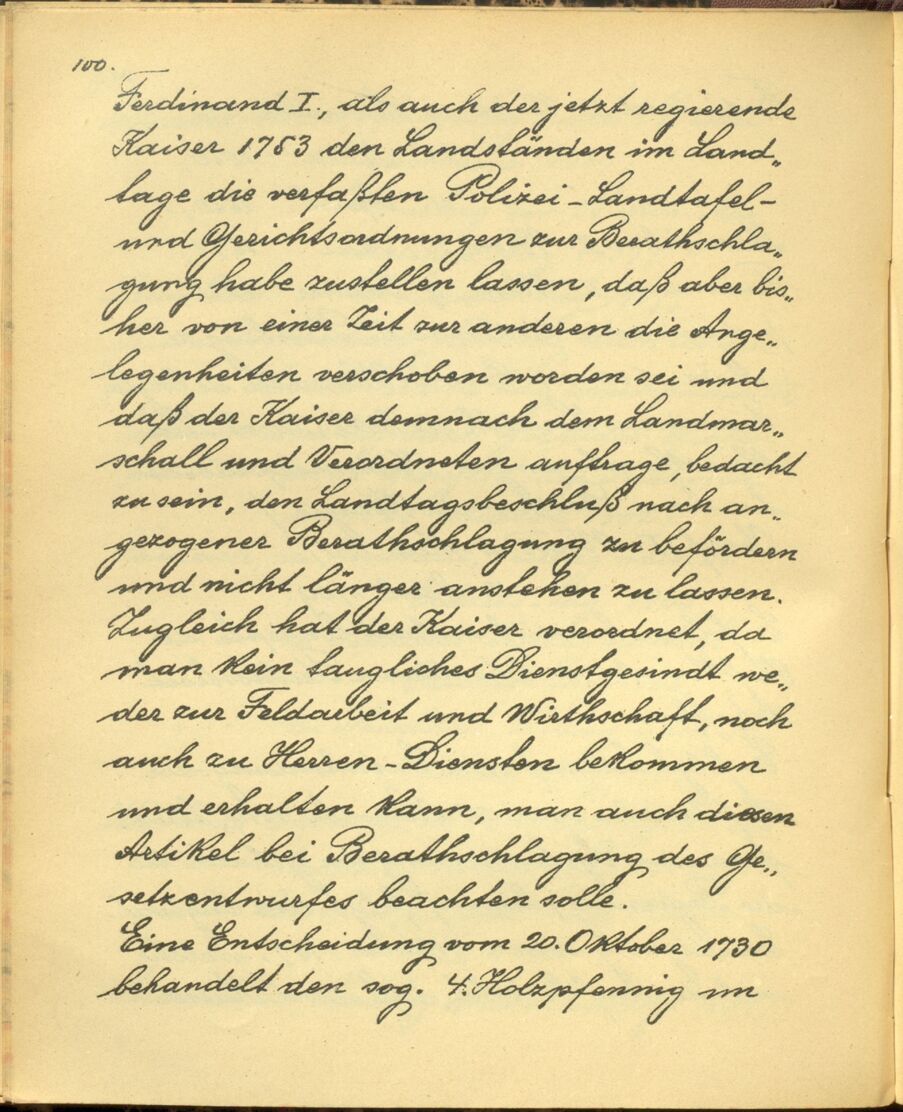 100.
Ferdinand I., als auch der jetzt regierende
Kaiser 1753 den Landständen im Land„
tage die verfaßten Polizei-Landtafel-
und Gerichtsordnungen zur Berathschla„
gung habe zustellen lassen, daß aber bis„
her von einer Zeit zur anderen die Ange„
legenheiten verschoben worden sei und
daß der Kaiser demnach dem Landmar„
schall und Verordneten auftrage, bedacht
zu sein, den Landtagsbeschluß nach an„
gezogener Berathschlagung zu befördern
und nicht länger anstehen zu lassen.
Zugleich hat der Kaiser verordnet, da
man kein taugliches Dienstgesindt we„
der zur Feldarbeit und Wirthschaft, noch
auch zu Herren-Diensten bekommen
und erhalten kann, man auch diesen
Artikel bei Berathschlagung des Ge„
setzentwurfes beachten solle.
Eine Entscheidung vom 20. Oktober 1730
behandelt den sog. 4. Holzpfennig im